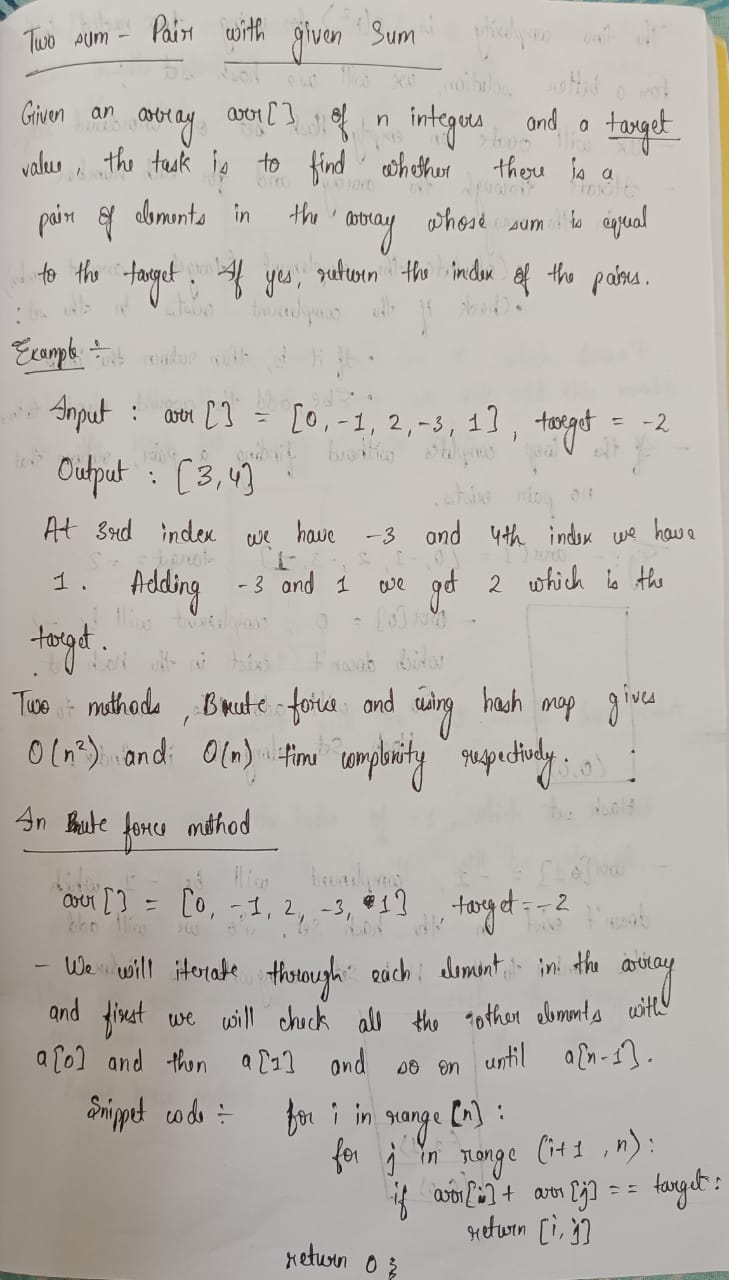 Two sum - Pair with given Sum
Given an array arr[] of n integers and a target
value, the task is to find whether there is a
pair of elements in the array whose sum is equal
to the target. If yes, return the index of the pairs.
Example ÷
Input : arr [] = [0, -1, 2, -3, 1], target = -2
Output : [3,4]
At 3rd index we have -3 and 4th index we have
1. Adding -3 and 1 we get 2 which is the
target.
Two methods, Brute force and using hash map gives
O(n²) and O(n) time complexity respectively.
In Brute force method
arr [] = [0, -1, 2, -3, 1], target = -2
- We will iterate through each element in the array
and first we will check all the other elements with
a[0] and then a[1] and so on until a[n-1].
Snippet code ÷ for i in range [n] :
for j in range (i+1, n):
if arr[i] + arr[j] == target:
return [i, j]
return 0;